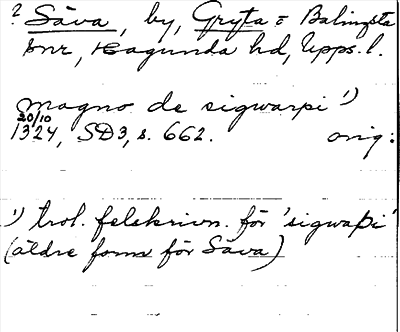 ? Säva, by, Gryta = Balingsta
snr, Hagunda hd, Upps. l.
magno de sigwarpi 1)
20/10
1324, SD3, s. 662. orig:
1) trol. felskrivn. för 'sigwaþi'
(äldre form för Säva)